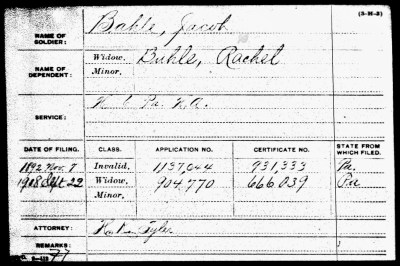 (3-M-2)
NAME OF SOLDIER: Bahle, Jacob
NAME OF DEPENDENT: Widow, Buhle, Rachel
Minor,
SERVICE:
DATE OF FILING. CLASS. APPLICATION NO. CERTIFICATE NO. STATE FROM WHICH FILED.
1892 Nov. 7 Invalid, 1137,044 931,333
1908 Sept 22 Widow, 904,770 666039 Pa
Minor,
ATTORNEY: Tyler
REMARKS: